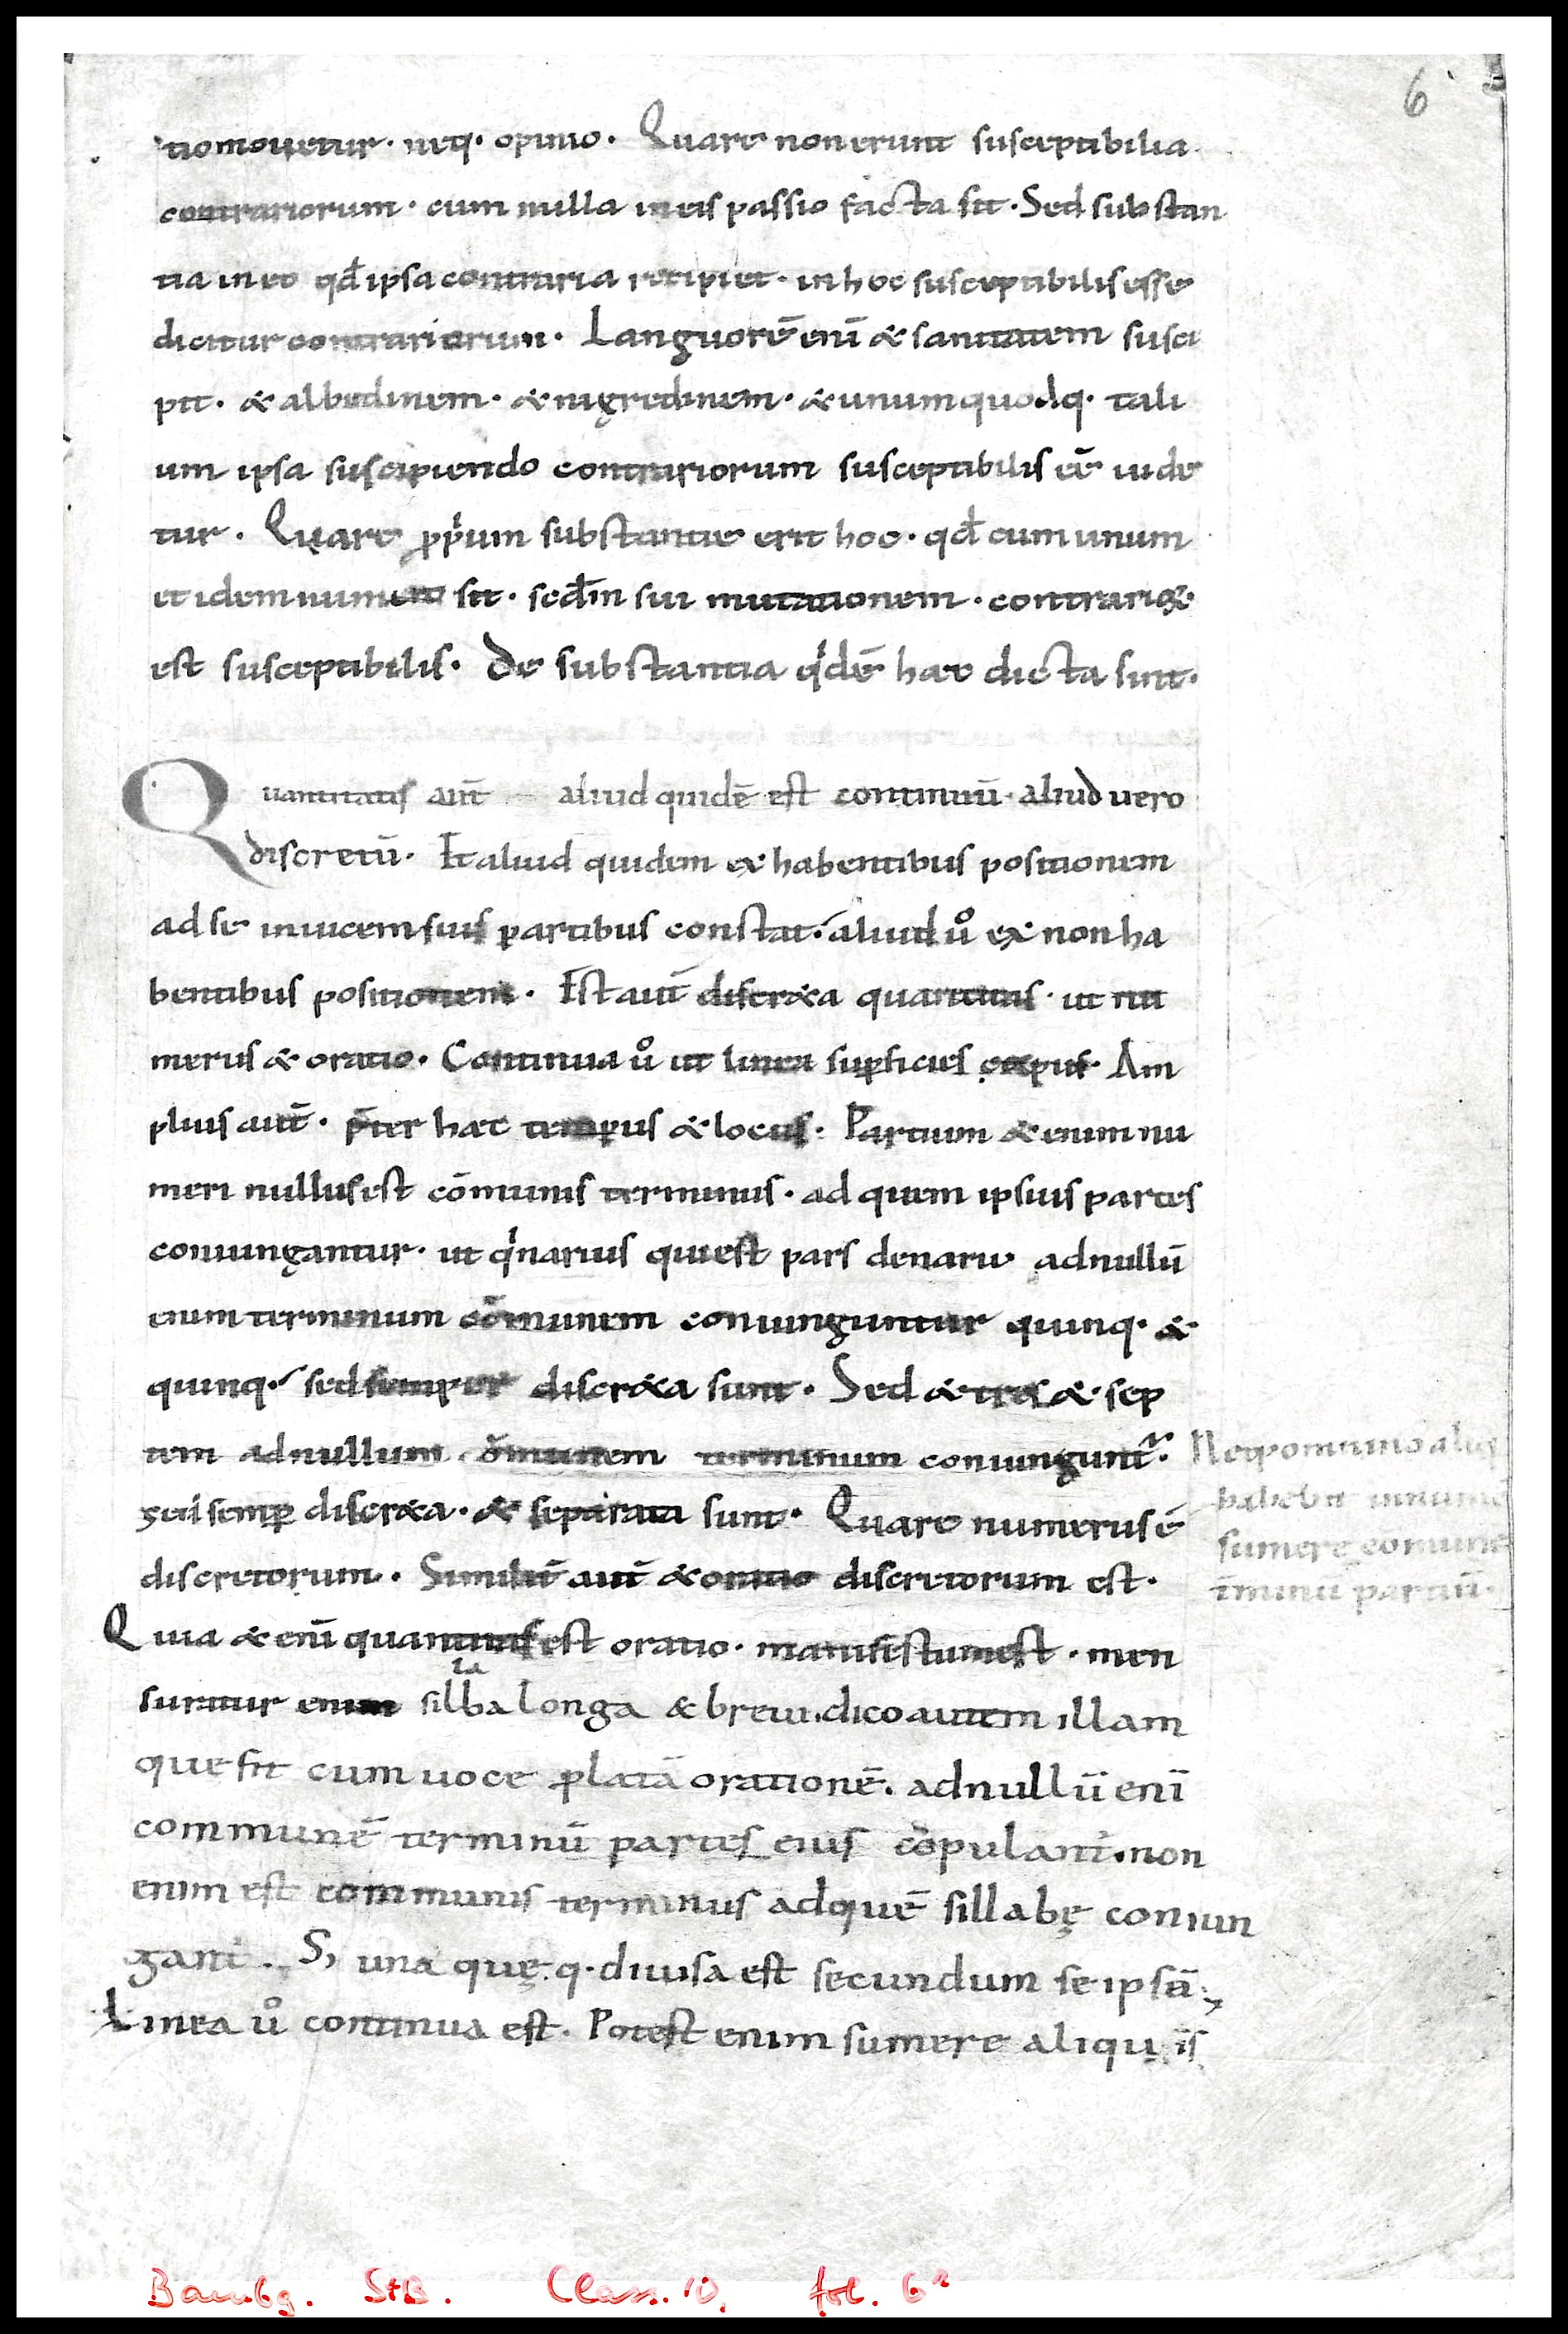 6
tio mouetur · neq· opinio · Quare non erunt susceptibilia
contrariorum · cum nulla in eis passio facta sit · Sed substan
tia in eo qđ ipsa contraria recipiet · in hoc susceptibilis esse
dicitur contrariorum · Languorē enī & sanitatem susci
pit · & albedinem · & nigredinem · & unumquodq· tali
um ipsa suscipiendo contrariorum susceptibilis eē uide
tur · Quare ꝓpͥum substantie erit hoc · qđ cum unum
et idem numero sit · scđm sui mutationem · contrariorum
est susceptibilis · De substantia qͥdē haec dicta sint ·
Quantitatis aūt aliud quidē est continuū · aliud uero
discretū · Et aliud quidem ex habentibus positionem
ad se inuicem suis partibus constat · aliud uͦ ex non ha
bentibus positionem · Est aūt discr&a quantitas · ut nu
merus & oratio · Continua uͦ ut linea suꝑficies corpus · Am
plius aūt · p̄ter haec tempus & locus · Partium &enim nu
meri nullus est cōmunis terminus · ad quem ipsius partes
coniungantur · ut qͥnarius qui est pars denarii ad nullū
enim terminum cōmunem coniunguntur quinq· &
quinq· sed semper discr&a sunt · Sed & tres & sep
tem ad nullum cōmunem terminum coniungunt᷑ ·
sed semꝑ discr&a · & separata sunt · Quare numerus ē
discretorum · Similit̄ aūt & oratio discretorum est ·
Quia &enī quantitas est oratio · manifestum est · men
suratur enim sillaba longa & breui · dico autem illam
que fit cum uoce ꝓlatā orationē · ad nullū enī
communē terminū partes eius cōpulant᷑ · non
enim est communis terminus ad quē sillabę coniun
gant᷑ · S; una quęq· diuisa est secundum se ipsā ;
Linea uͦ continua est · Potest enim sumere aliquis
Neq· omnino aliq
habebit in nume
sumere comune
t̄minū partiū ·
Bambg. StB. Class. 10, fol. 6ʳ